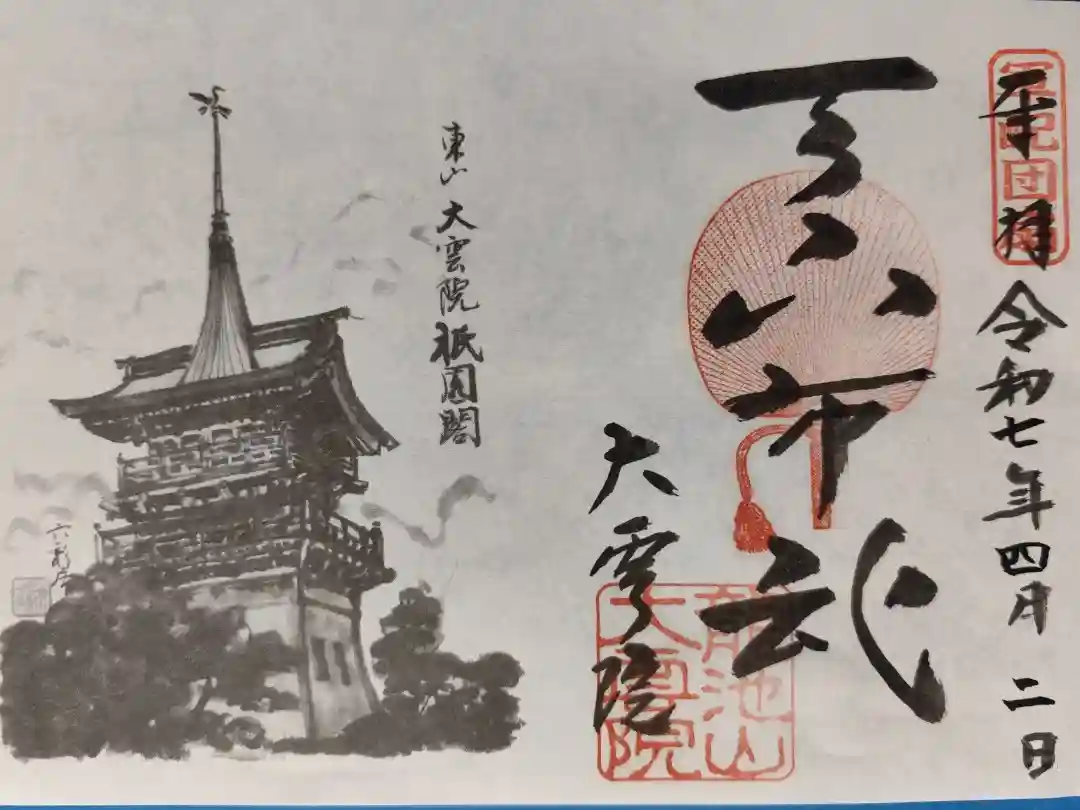 軍配団扇
奉拝 令和七年四月二日
天下布武
大雲院
龍池山
大雲院
東山 大雲院 祇園閣